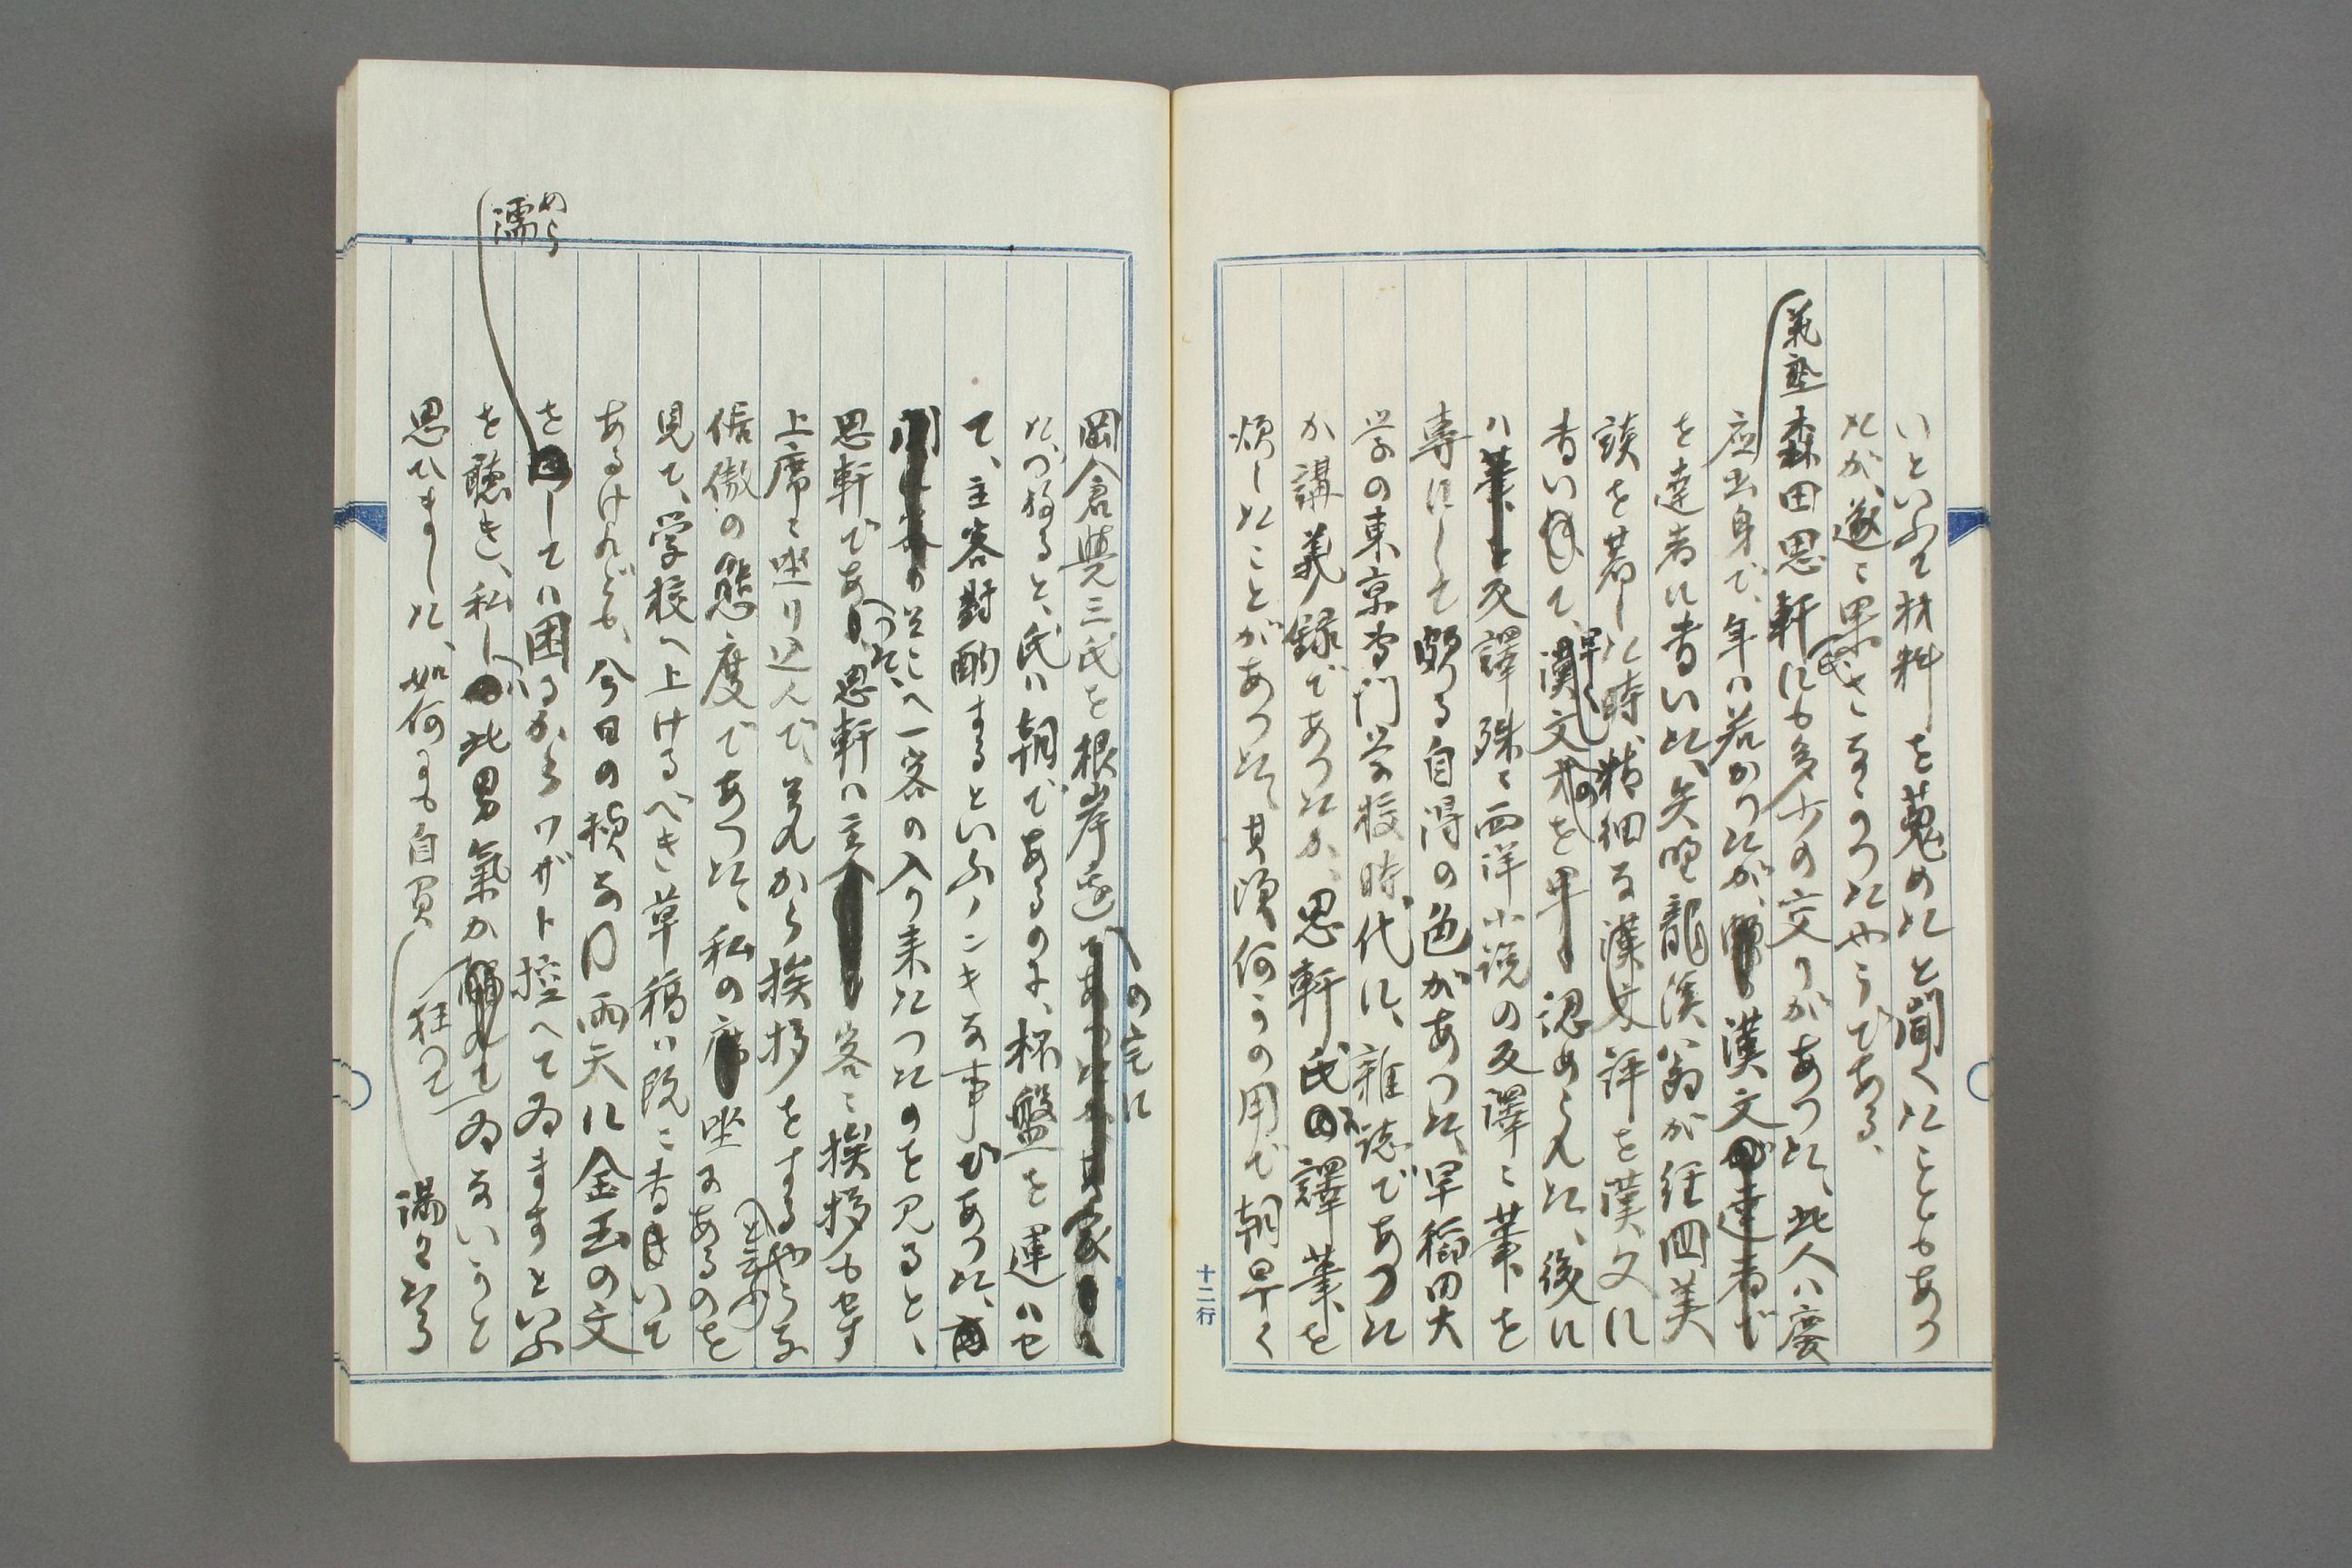 いといふて材料を蒐めたと聞くたこともあつ
たが、遂に果さなかつたやうである、
森田思軒にも多少の交りがあつた、此人ハ慶
應義塾出身で、年ハ若かつたが、漢文
を達者に書いた、矢野龍溪翁が経国美
談を著した時、精細な漢文評を漢文に
書いて、早く漢文の才を認められた、後に
ハ反譯殊に西洋小説の反譯に筆を
専にして頗る自得の色があつた、早稲田大
学の東京専門学校時代に、雑誌であつた
か講義録であつたか、思軒氏に譯筆を
煩したことがあつた、其際何かの用で朝早く
岡倉覺三氏を根岸邊の宅に
たづねると、氏ハ朝であるのに、杯盤を運ハせ
て、主客対酌するといふノンキな事であつた、
そこへ一客の入り来たつたのを見ると、
思軒であつた、思軒ハ主客に挨拶もせす
上席に坐り込んで、それから挨拶をするやうな
倨傲の態度であつた、私の坐にあるのを
見て、学校へ上けるべき草稿ハ既に書いて
あるけれども、今日の様な雨天に金玉の文
を濡めらしてハ困るからワザト控へてゐますといふ
を聴き、私ハ此男氣か狂つてゐないかと
思ひました、如何にも自負満々たる
十二行